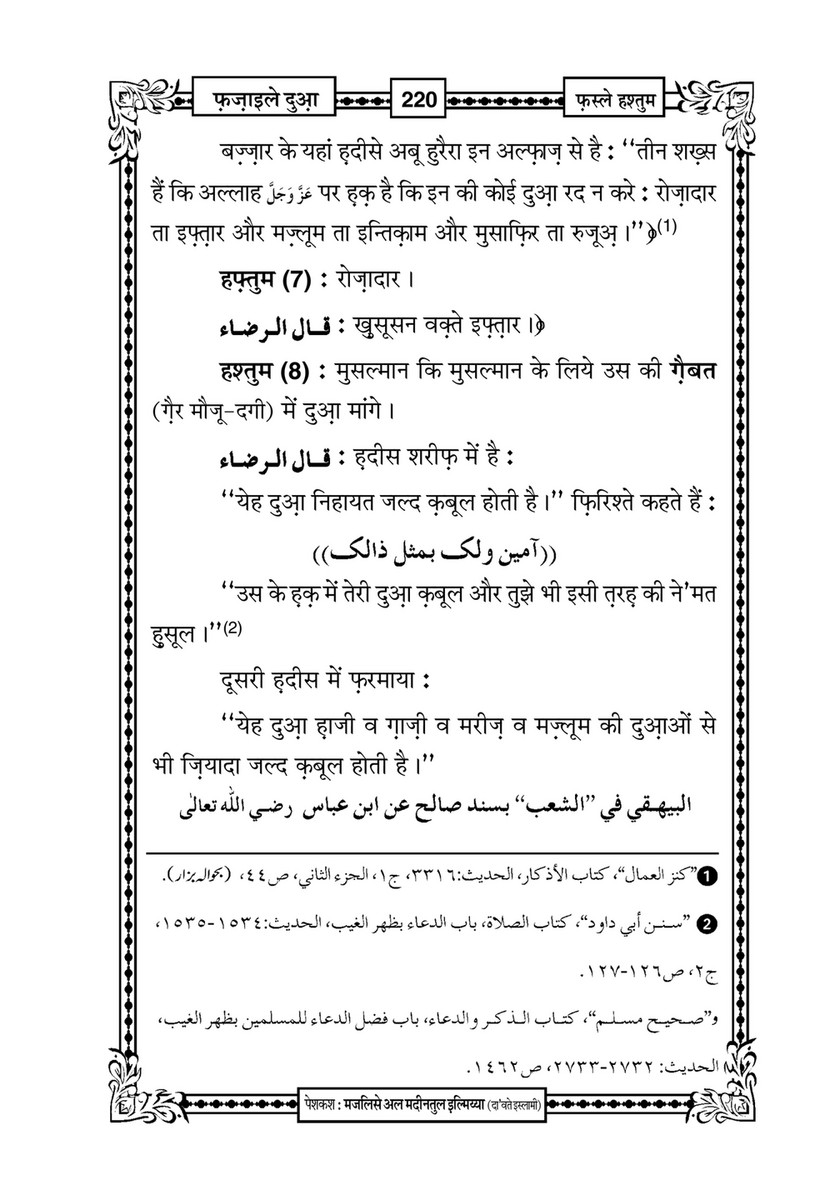 फ़ज़ाइले दुआ़
220
फ़स्ले हश्तुम
बज़्ज़ार के यहां ह़दीसे अबू हुरैरा इन अल्फ़ाज़ से है : ‘‘तीन शख़्स
हैं कि अल्लाह عَزَّوَجَلَّ पर ह़क़ है कि इन की कोई दुआ़ रद न करे : रोज़ादार
ता इफ़्त़ार और मज़्लूम ता इन्तिक़ाम और मुसाफ़िर ता रुजूअ़ ।’’﴿(1)
हफ़्तुम (7) : रोज़ादार ।
قال الرضاء : ख़ुसूसन वक़्ते इफ़्त़ार ।﴿
हश्तुम (8) : मुसल्मान कि मुसल्मान के लिये उस की ग़ैबत
(ग़ैर मौजू-दगी) में दुआ़ मांगे ।
قال الرضاء : ह़दीस शरीफ़ में है :
‘‘येह दुआ़ निहायत जल्द क़बूल होती है ।’’ फ़िरिश्ते कहते हैं :
((آمين ولک بمثل ذالک))
‘‘उस के ह़क़ में तेरी दुआ़ क़बूल और तुझे भी इसी त़रह़ की ने’मत
हु़सूल ।’’(2)
दूसरी ह़दीस में फ़रमाया :
‘‘येह दुआ़ ह़ाजी व ग़ाज़ी व मरीज़ व मज़्लूम की दुआ़ओं से
भी ज़ियादा जल्द क़बूल होती है ।’’
البيهقي في ”الشعب“ بسند صالح عن ابن عباس رضي الله تعالى
❶”كنز العمال“، كتاب الأذكار، الحديث:٣٣١٦، ج١، الجزء الثاني، ص٤٤، (بحواله بزار).
❷ ”سنن أبي داود“، كتاب الصلاة، باب الدعاء بظهر الغيب، الحديث:١٥٣٤-١٥٣٥،
ج٢، ص١٢٦-١٢٧.
و”صحيح مسلم“، كتاب الذكر والدعاء، باب فضل الدعاء للمسلمين بظهر الغيب،
الحديث: ٢٧٣٢-٢٧٣٣، ص١٤٦٢.
पेशकश : मजलिसे अल मदीनतुल इ़ल्मिय्या (दा'वते इस्लामी)